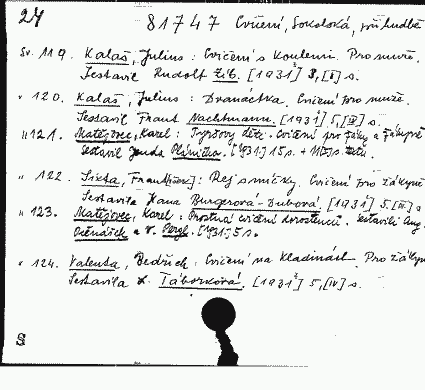 24 81747 Cvičení, Sokolská, při hudbě
Sv. 119. Kalaš, Julius: Cvičení s koulemi. Pro muže.
Sestavil Rudolf Žib. [1931?] 3, [I] s.
" 120. Kalaš, Julius: Dvanáctka. Cvičení pro muže.
Sestavil Frant. Nachtmann. [1931?] 5, [III] s.
" 121. Matějovec, Karel: Tyršovy děti. Cvičení pro žáky a žákyně
Sestavil [1931.] 15 s. +
" 122. Sixta, František]: Rej sničky. Cvičení pro žákyně
Sestavila Hana Burgerová-Dubová. [1931?] 5, [III] s.
" 123. Matějovec, Karel: Prostná cvičení dorostenců. Sestavili Aug.
Očenášek a V. Pergl. [1931.] 5 s.
" 124. Valenta, Bedřich: Cvičení na kladinách. Pro žákyn
Sestavila L. Táborková. [1931?] 5, [IV] s.
S